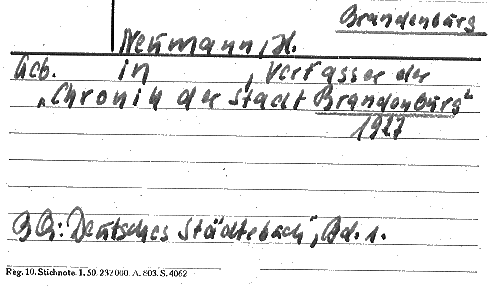 Brandenburg
Neumann, H.
Geb. in , Verfasser der
„Chronik der Stadt Brandenburg"
1927
BQ: Deutsches Städtebuch", Bd. 1.
Reg. 10. Stichnote. 1. 50. 232000. A. 803. S. 4062